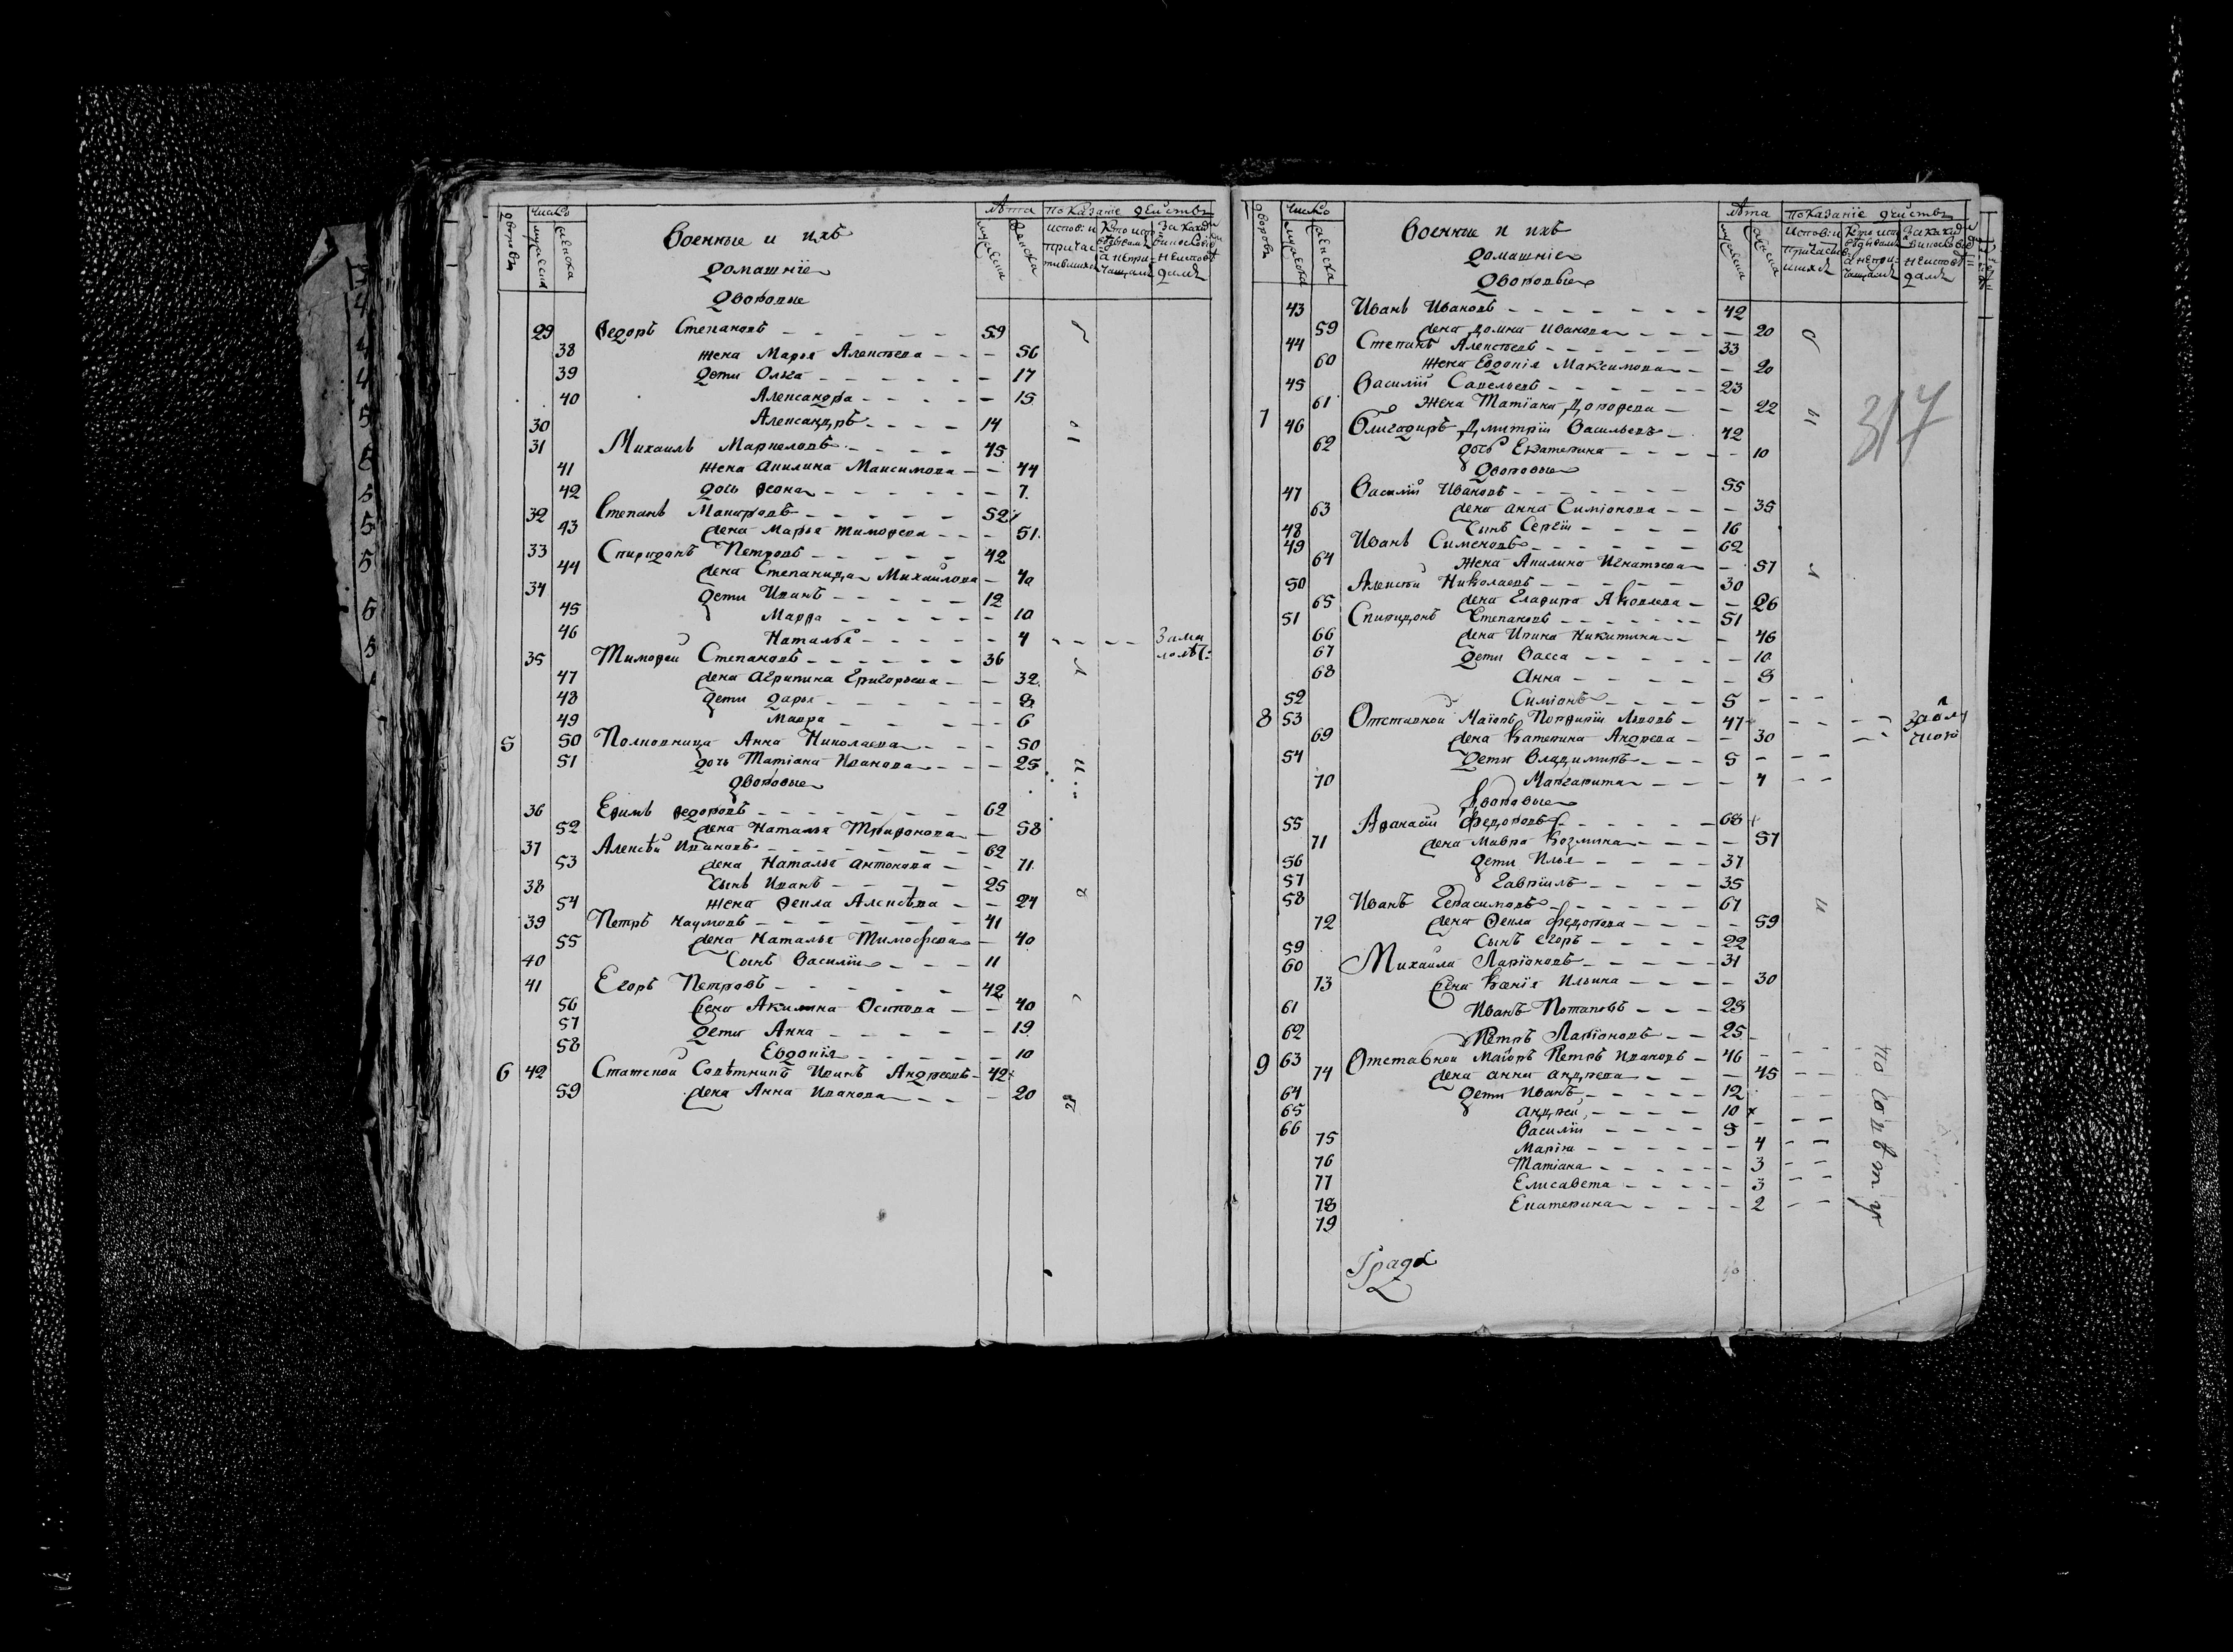 дворовъ Число лѣта показанїе дѣйствъ
мужеска женска Военные и ихъ мужеска женска испов: и причастившихся Кто исповѣдывал а непричащалс За какими виносло неисповѣдалс
домашнїе
дворовые
29 Ѳедоръ Степановъ 59
38 жена Марья Алексѣева 56
39 дети Ольга 17
40 Александра 15
30 Александръ 14
31 Михаилъ Маркеловъ 45
41 жена Акилина Максимова 44
42 дочь Ѳеона 7
32 Степанъ Макаровъ 52
43 жена Марья Тимоѳеева 51
33 Спиридонъ Петровъ 42
44 жена Степанида Михайлова 40
34 дети Иванъ 12
45 Марѳа 10
46 Наталья 4 За малолѣт:
35 Тимоѳей Степановъ 36
47 жена Агрипина Григорьева 32
48 дети Дарья 8
49 Мавра 6
5 50 Полковница Анна Николаева 50
51 дочь Татіана Иванова 25
дворовые
36 Еѳимъ Ѳедоровъ 62
52 жена Наталья Триѳонова 58
37 Алексѣй Ивановъ 62
53 жена Наталья Антонова 71
38 сынъ Иванъ 25
54 жена Ѳекла Алексѣева 24
39 Петръ Наумовъ 41
55 жена Наталья Тимофеева 40
40 Сынъ Василїй 11
41 Егоръ Петровъ 42
56 жена Акилина Осипова 40
57 дети Анна 19
58 Евдокїя 10
6 42 Статской Совѣтникъ Иванъ Андреевъ 42
59 жена Анна Иванова 20
дворовъ Число лѣта показанїе дѣйствъ
мужеска женска Военные и ихъ мужеска женска
домашнїе
Дворовые
43 Иванъ Ивановъ 42
59 жена Домна Иванова 20
44 Степанъ Алексѣевъ 33
60 жена Евдокія Максимова 20
45 Василїй Савельевъ 23
61 жена Татїана Дороѳеева 22
317
7 46 Бригадиръ Дмитрїй Васильевъ 42
62 дочь Екатерина 10
Дворовые
47 Василїй Ивановъ 55
63 жена Анна Симїонова 35
48 Сынъ Сергїй 16
49 Иванъ Сименовъ 62
64 жена Акилина Игнатьева 57
50 Алексѣй Николаевъ 30
65 жена Глафира Яковлева 26
51 Спиридонъ Степановъ 51
66 жена Ирина Никитина 46
67 дети Васса 10
68 Анна 8
52 Симїонъ 5
8 53 Отставной Маїоръ Порфирїй Львовъ 47
69 жена Катерина Андреева 30
54 дети Владимиръ 5
70 Маргарита 4
Дворовые
55 Аѳанасїй Федоровъ 68
71 жена Мавра Козмина 57
56 дети Илья 37
57 Гаврїилъ 35
58 Иванъ Герасимовъ 67
72 жена Ѳекла Федорова 59
59 Сынъ Егоръ 22
60 Михайла Ларїоновъ 31
73 жена Ксенїя Ильина 30
61 Иванъ Потаповъ 23
62 Петръ Ларїоновъ 25
9 63 Отставной Маїоръ Петръ Ивановъ 46
74 жена Анна Андреева 45
64 дети Иванъ 12
65 Андрей 10
66 Василїй 8
75 Марїя 4
76 Татїана 3
77 Елисавета 3
78 Екатерина 2
79
Града